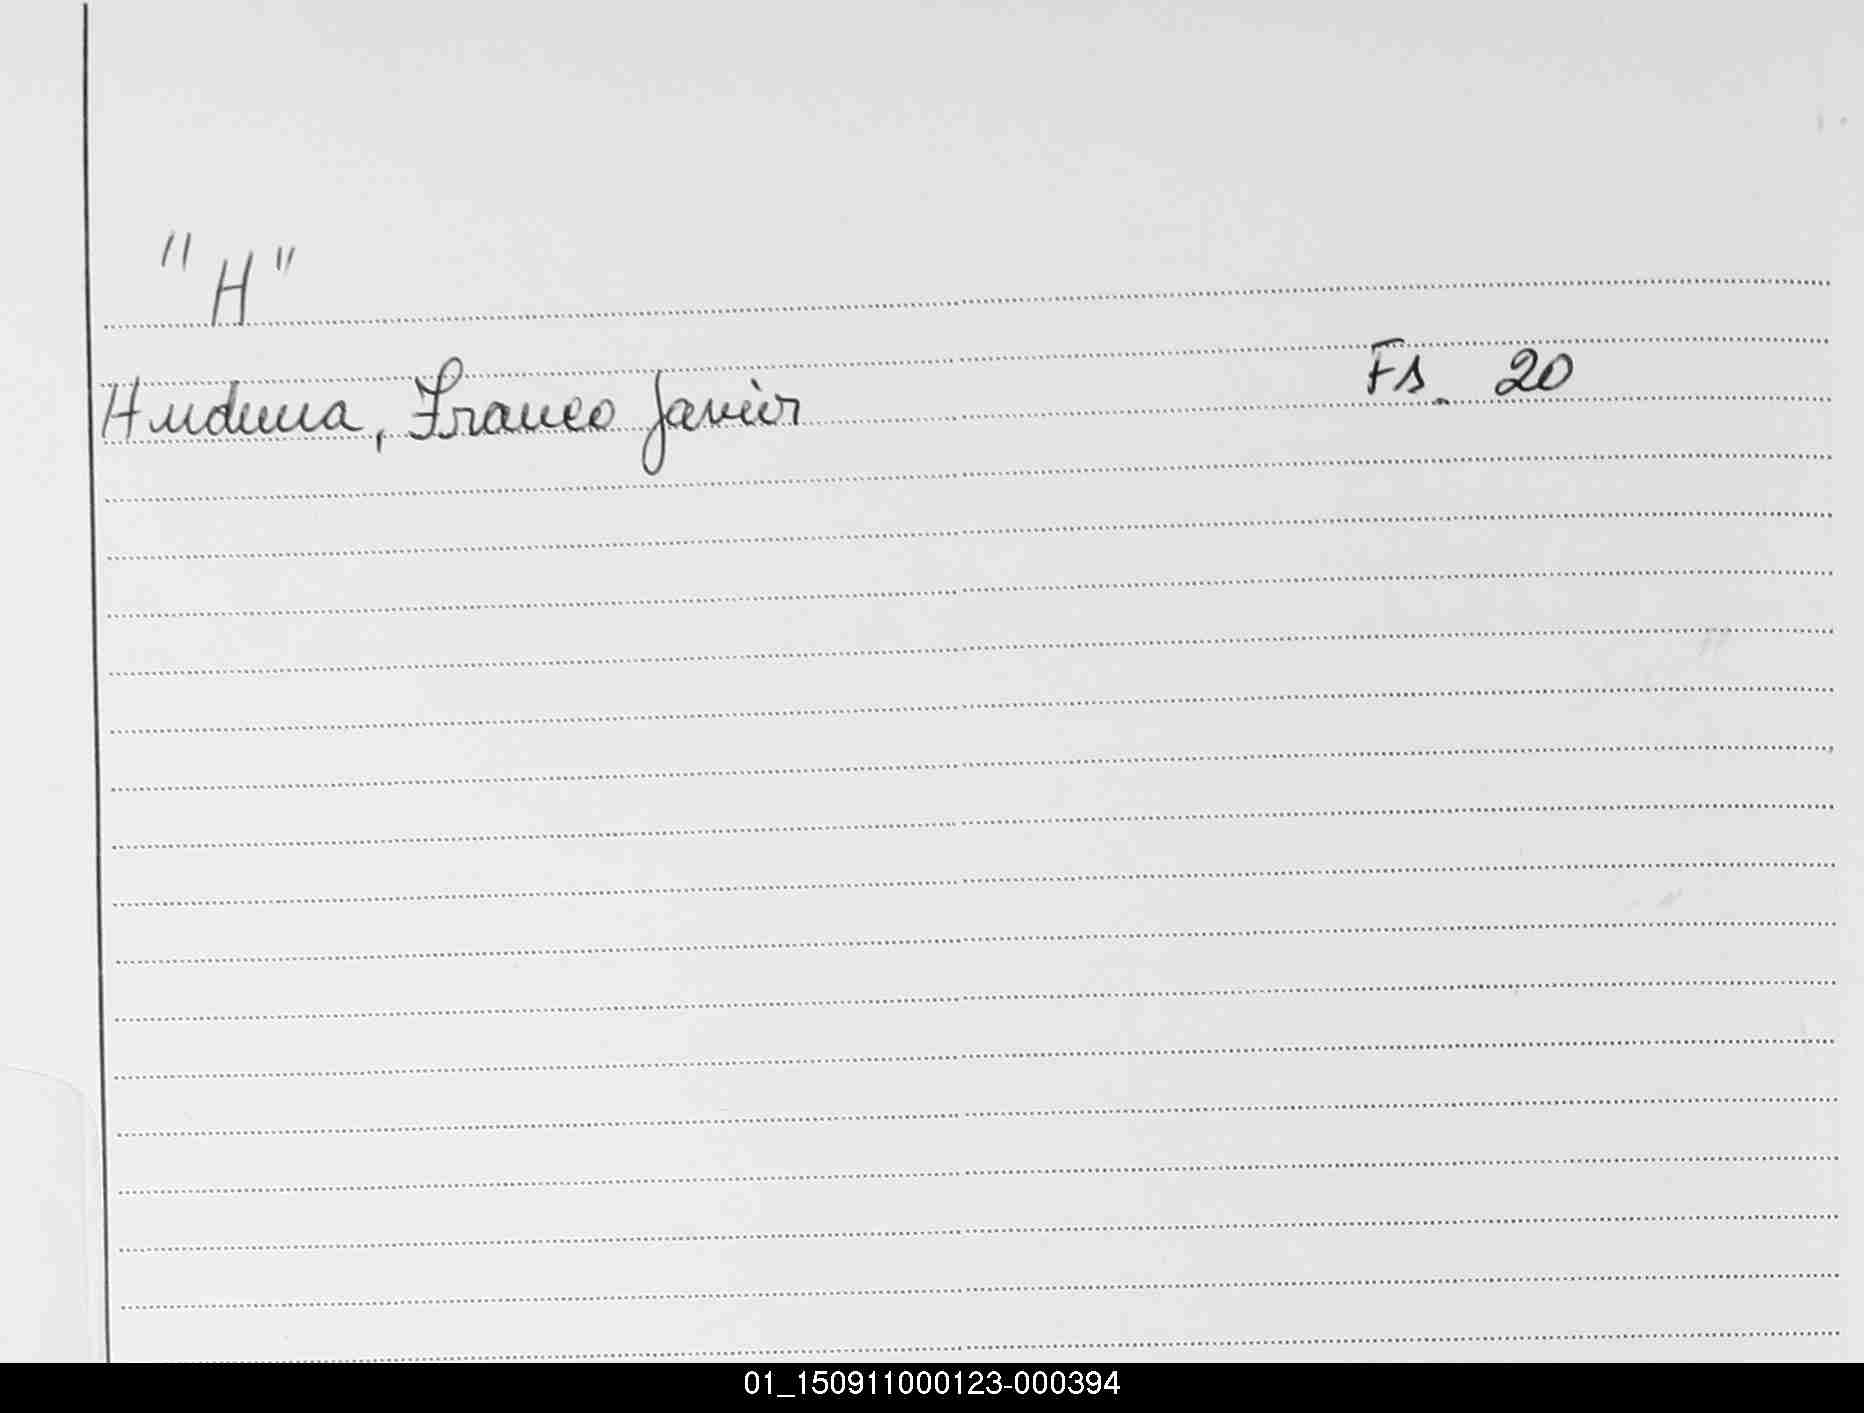 "H"
Hudema, Franco Javier Fs. 20
01_150911000123-000394